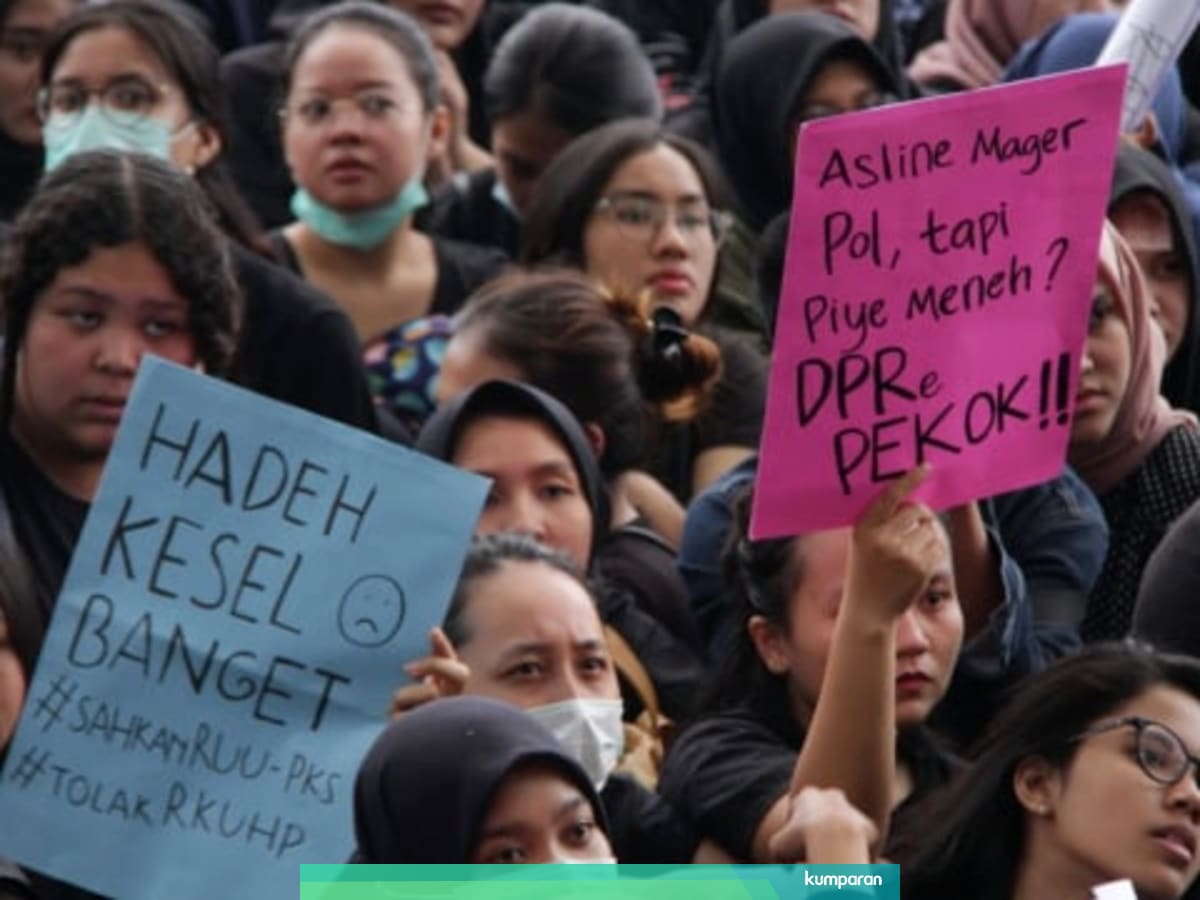 HADEH
KESEL
BANGET
#SAHKANRUU-PKS
#TOLAKRKUHP
Asline Mager
Pol, tapi
Piye Meneh?
DPRe
PEKOK!!
kumparan